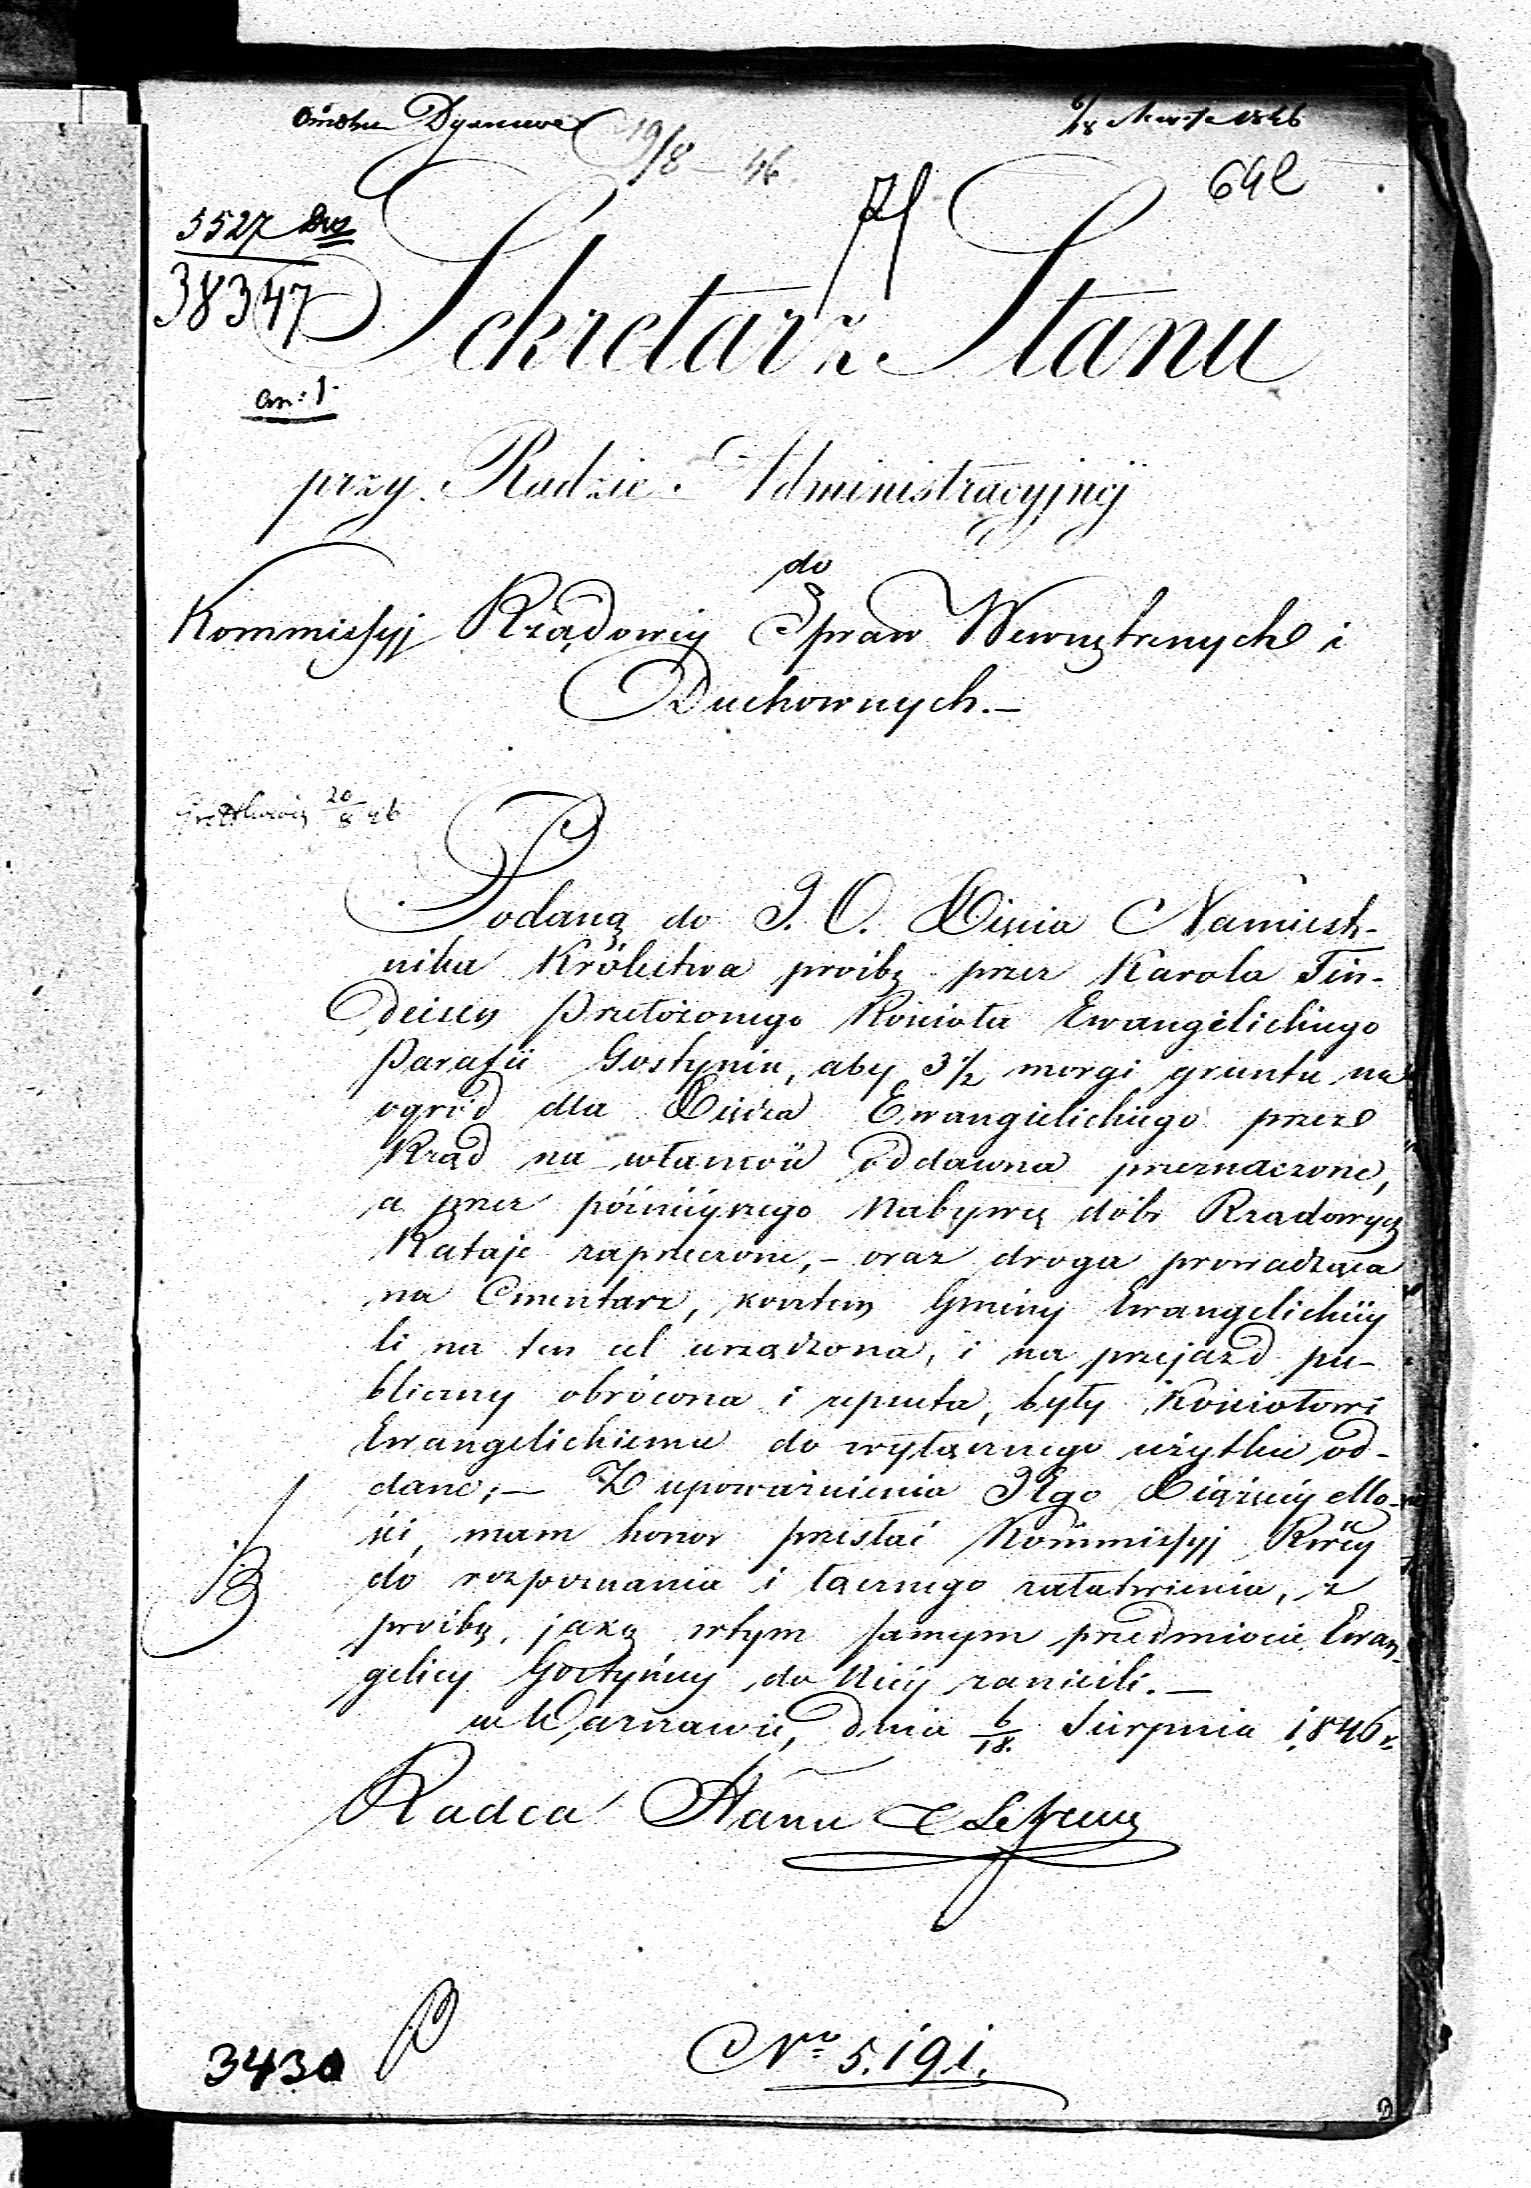 19/8 – 46.
6/18 1846
642
5527 Dws
38347
Sekretarz Stanu
an: 1.
przy Radzie Administracyjnéj
do
Kommissyj Rządowéj Spraw Wewnętrznych i
Duchownych.—
20/8 46
Podaną do J. O. Xięcia Namiest-
nika Królestwa prośbę przez Karola Fin-
deisen Przełożonego Kościoła Ewangelickiego
Parafii Gostynin, aby 3½ morgi gruntu na
ogród dla Xiędza Ewangielickiego przez
Rząd na własność oddawna przeznaczone,
a przez późniéjszego Nabywcę dóbr Rządowych
Rataje zaprzeczone,– oraz droga prowadząca
na Cmentarz, kosztem Gminy Ewangelickiéj
li na ten cel urządzona, i na przejazd pu-
bliczny obrócona i zepsuta, były Kościołowi
Ewangelickiemu do wyłącznego użytku od-
dane;— Z upoważnienia JEgo Xiążęcéj Mo-
ści, mam honor przesłać Kommissyj Rwéj
do rozpoznania i łącznego załatwienia, z
prośbą, jaką wtym samym przedmiocie Ewan-
gelicy Gostyńscy do Niéj zanieśli.—
w Warszawie, dnia 6/18. Sierpnia 1846 r.
Radca Stanu
3430
No 5.191.